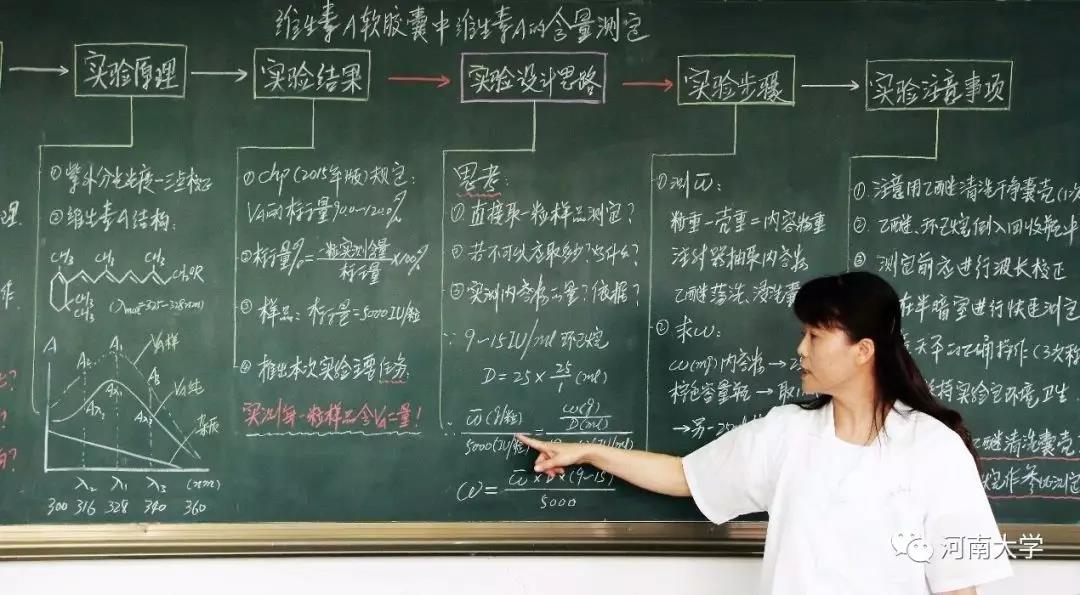 维生素A软胶囊中维生素A的含量测定
实验原理
①紫外分光光度-三点校正
②维生素A结构:
CH₃ CH₃ CH₃ CH₂OR
CH₃
CH₃
(λmax=325-328nm)
A
A₂ A₁ A₃
VA样
VA纯
杂质
λ₂ λ₁ λ₃ (nm)
300 316 328 340 360
实验结果
①chp(2015年版)规定:
VA应标示量90.0-120.0%
②标示量%=一粒实测含量/标示量×100%
③样品:标示量=5000IU/粒
④推出本次实验主要任务:
实测每一粒样品含VA量!
实验设计思路
思考:
①直接取一粒样品测定?
②若不可以应取多少?为什么?
③实测内容物量?依据?
∵9-15IU/ml 环己烷
D=25×25/1(ml)
∴ω̄(g/粒)/5000(IU/粒)=ω(g)/D(ml)
ω=ω̄×D×(9-15)/5000
实验步骤
①测ω̄:
粒重-壳重=内容物重
注射器抽取内容物
乙醚荡洗、浸洗囊
②求ω:
ω(mg)内容物→
棕色容量瓶→取
→另一25
实验注意事项
①注意用乙醚清洗干净囊壳
②乙醚、环己烷倒入回收瓶中
③测定前应进行波长校正
在半暗室进行快速测定
天平正确操作(3次称
持实验室环境卫生
乙醚清洗囊壳
烷作参比测定
河南大学